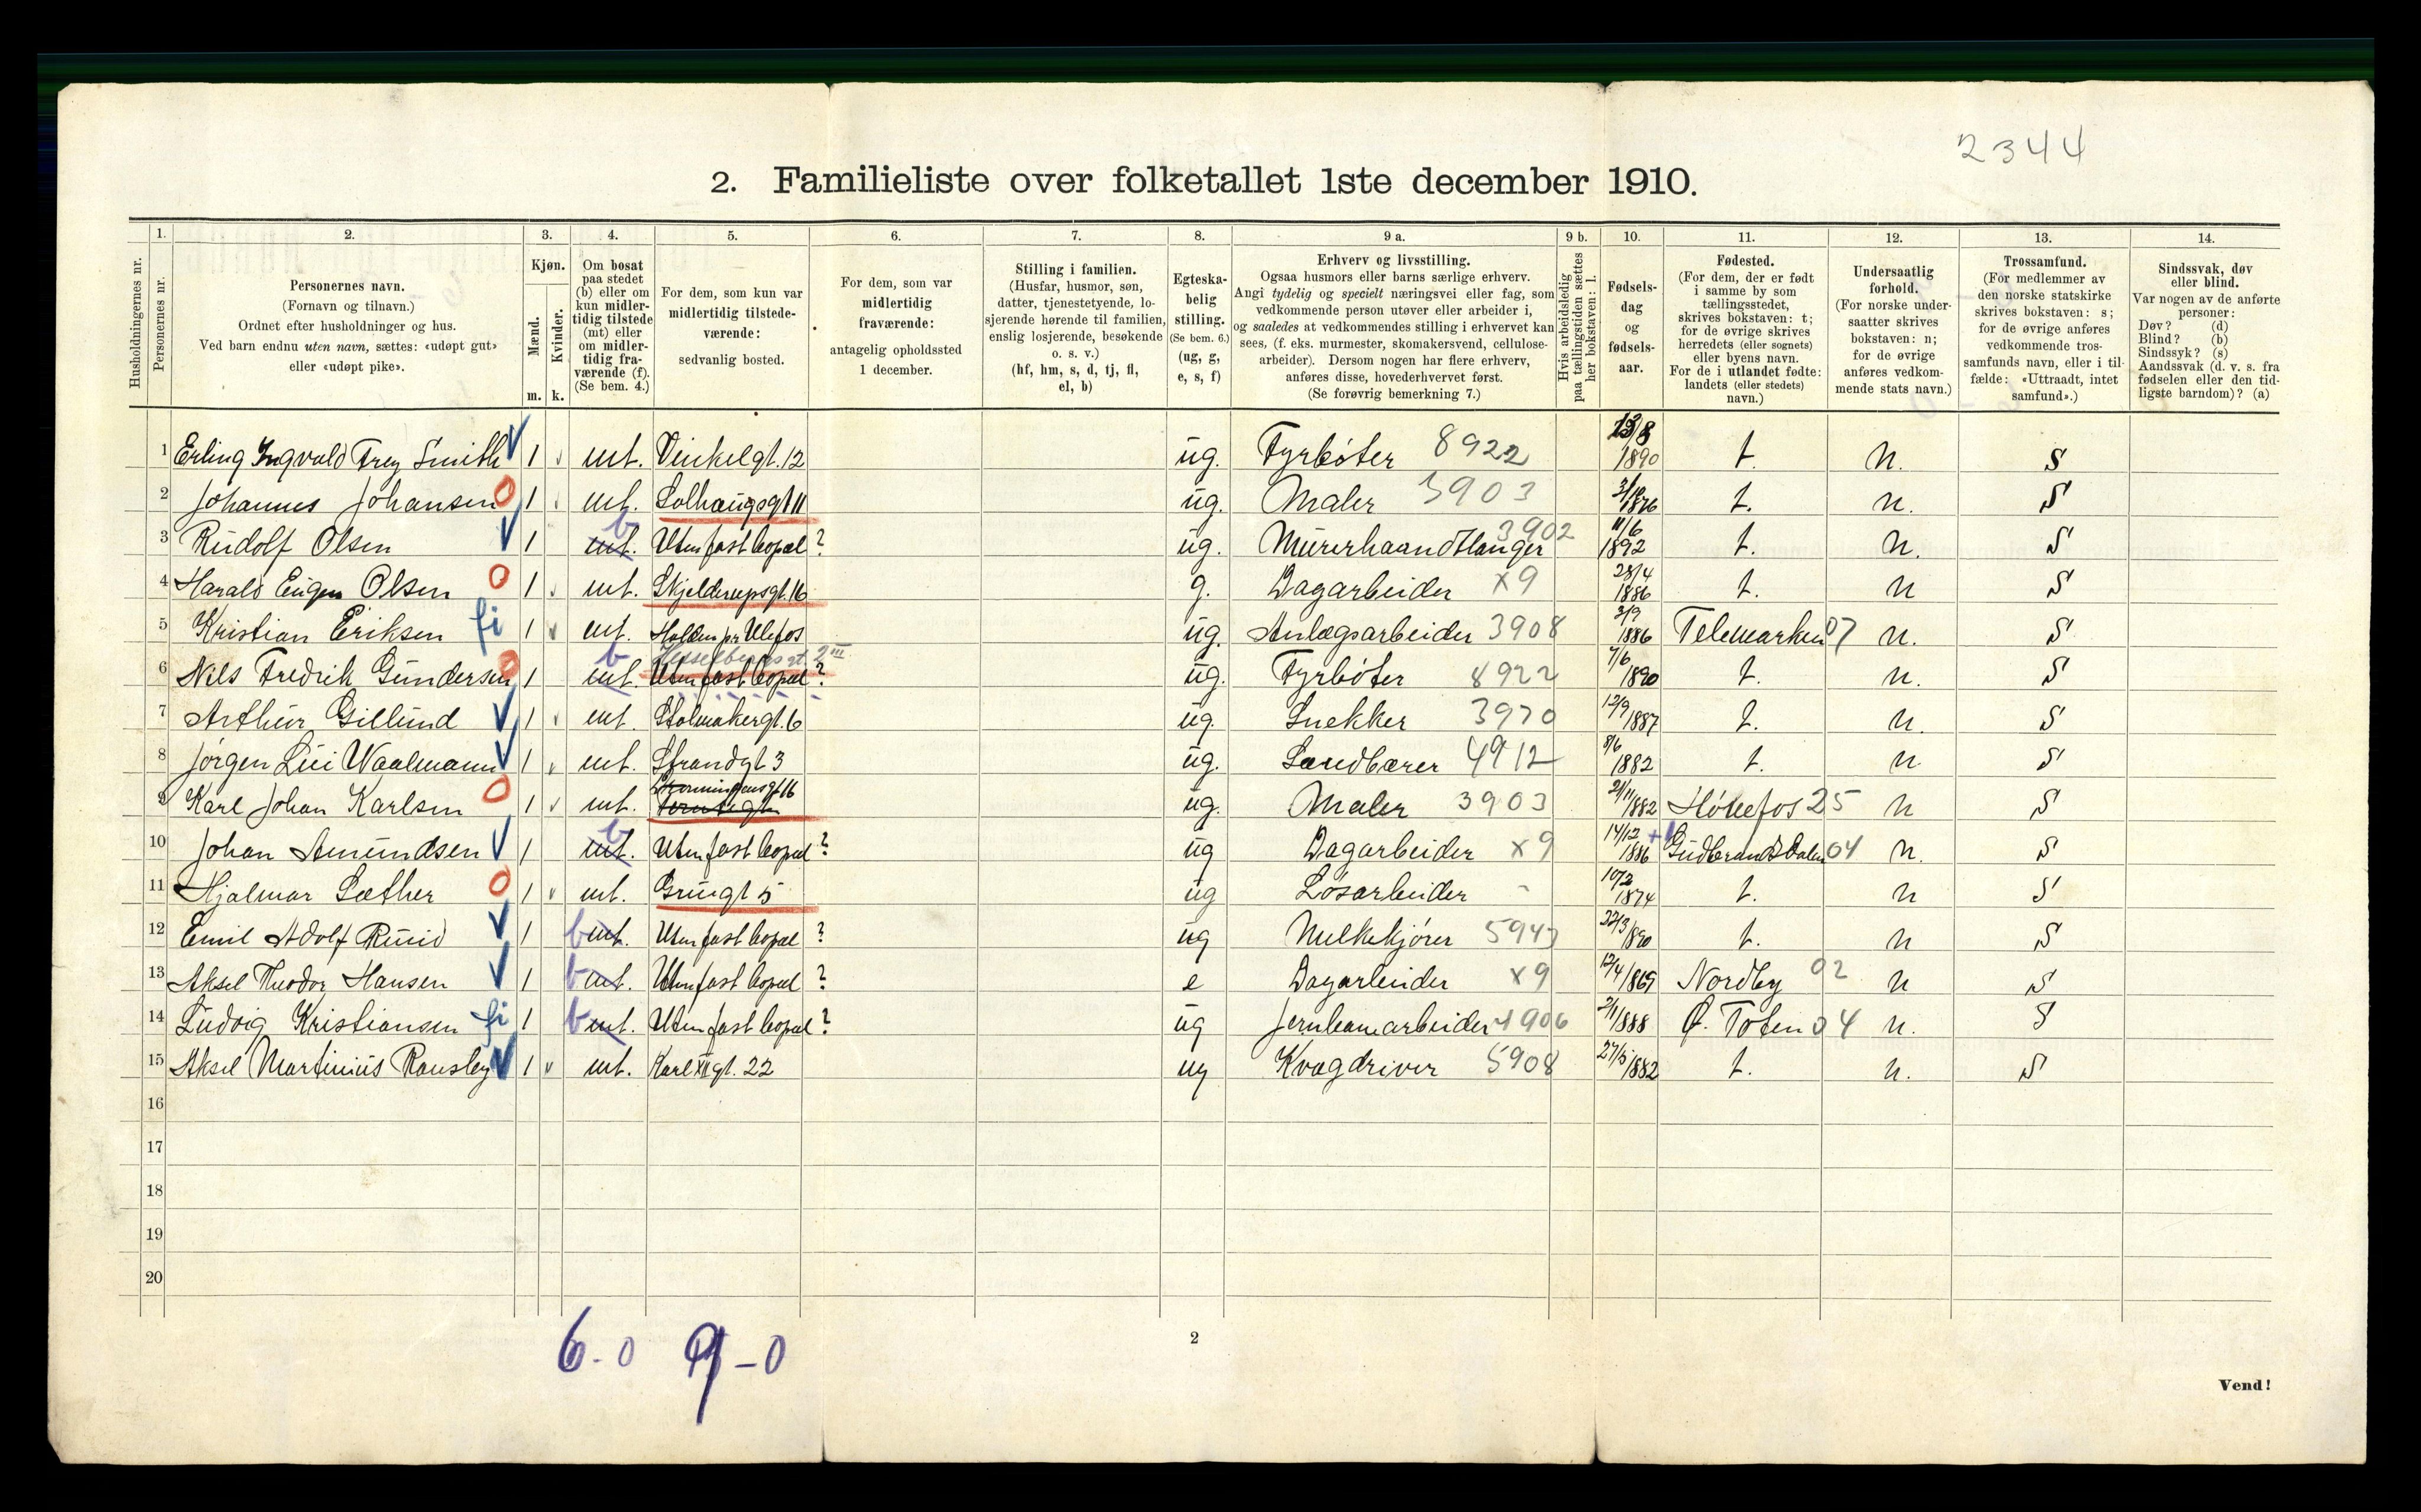 2344
2. Familieliste over folketallet 1ste december 1910.
1. 2. 3. 4. 5. 6. 7. 8. 9 a. 9 b. 10. 11. 12. 13. 14.
Husholdningernes nr.
Personernes nr.
Personernes navn.
(Fornavn og tilnavn.)
Ordnet efter husholdninger og hus.
Ved barn endnu uten navn, sættes: «udøpt gut»
eller «udøpt pike».
Kjøn.
Mænd.
Kvinder.
m. k.
Om bosat
paa stedet
(b) eller om
kun midler-
tidig tilstede
(mt) eller
om midler-
tidig fra-
værende (f).
(Se bem. 4.)
For dem, som kun var
midlertidig tilstede-
værende:
sedvanlig bosted.
For dem, som var
midlertidig
fraværende:
antagelig opholdssted
1 december.
Stilling i familien.
(Husfar, husmor, søn,
datter, tjenestetyende, lo-
sjerende hørende til familien,
enslig losjerende, besøkende
o. s. v.)
(hf, hm, s, d, tj, fl,
el, b)
Egteska-
belig
stilling.
(Se bem. 6.)
(ug, g,
e, s, f)
Erhverv og livsstilling.
Ogsaa husmors eller barns særlige erhverv.
Angi tydelig og specielt næringsvei eller fag, som
vedkommende person utøver eller arbeider i,
og saaledes at vedkommendes stilling i erhvervet kan
sees, (f. eks. murmester, skomakersvend, cellulose-
arbeider). Dersom nogen har flere erhverv,
anføres disse, hovederhvervet først.
(Se forøvrig bemerkning 7.)
Hvis arbeidsledig
paa tællingstiden sættes
her bokstaven: l.
Fødsels-
dag
og
fødsels-
aar.
Fødested.
(For dem, der er født
i samme by som
tællingsstedet,
skrives bokstaven: t;
for de øvrige skrives
herredets (eller sognets)
eller byens navn.
For de i utlandet fødte:
landets (eller stedets)
navn.)
Undersaatlig
forhold.
(For norske under-
saatter skrives
bokstaven: n;
for de øvrige
anføres vedkom-
mende stats navn.)
Trossamfund.
(For medlemmer av
den norske statskirke
skrives bokstaven: s;
for de øvrige anføres
vedkommende tros-
samfunds navn, eller i til-
fælde: «Uttraadt, intet
samfund».)
Sindssvak, døv
eller blind.
Var nogen av de anførte
personer:
Døv? (d)
Blind? (b)
Sindssyk? (s)
Aandssvak (d. v. s. fra
fødselen eller den tid-
ligste barndom)? (a)
1 Erling Ingvald Frey Smith 1 mt. Vinkelgt. 12 ug. Fyrbøter 8922 13/8 1890 t. n. s
2 Johannes Johansen 1 mt. Solhaugsgt 11 ug. Maler 3903 1876 t. n. s
3 Rudolf Olsen 1 mt. b Uten fast bopæl ? ug. Murerhaandtlanger 3902 11/6 1892 t. n. s
4 Harald Eugen Olsen 1 mt. Skjelderupsgt. 16 g. Dagarbeider x9 28/4 1886 t. n s
5 Kristian Eriksen fi 1 mt. Holden pr Ulefos ug. Anlægsarbeider 3908 3/9 1886 Telemarken 07 n. s
6 Nils Fredrik Gundersen 1 mt. b Hesselbergsgt. 2 III Uten fast bopæl ? ug. Fyrbøter 8922 7/6 1890 t. n. s
7 Arthur Gillund 1 mt. Stolmakergt. 6 ug. Snekker 3970 12/9 1887 t. n. s
8 Jørgen Lui Waalmann 1 mt. Strandgt 3 ug. Sandbærer 4912 8/6 1882 t. n s
9 Karl Johan Karlsen 1 mt. ug. Maler 3903 21/11 1882 Hønefos 25 n s
10 Johan Amundsen 1 mt. b Uten fast bopæl ? ug Dagarbeider x9 14/12 1886 Gudbrandsdalen 04 n. s
11 Hjalmar Sæther 1 mt. Grungt 5 ug Løsarbeider - 10/2 1874 t. n s
12 Emil Adolf Ruud 1 b mt. Uten fast bopæl ? ug Melkekjører 5943 22/3 1890 t. n s
13 Aksel Theodor Hansen 1 b mt. Uten fast bopæl ? e Dagarbeider x9 12/4 1869 Nordby 02 n s
14 Ludvig Kristiansen fi 1 b mt. Uten fast bopæl ? ug Jernbanearbeider 4906 2/1 1888 Ø. Toten 04 n. s
15 Aksel Martinius Ransby 1 mt. Karl XII gt. 22 ug Kvægdriver 5908 27/5 1882 t. n. s
16
17
18
19
20
6-0 9-0
2
Vend!